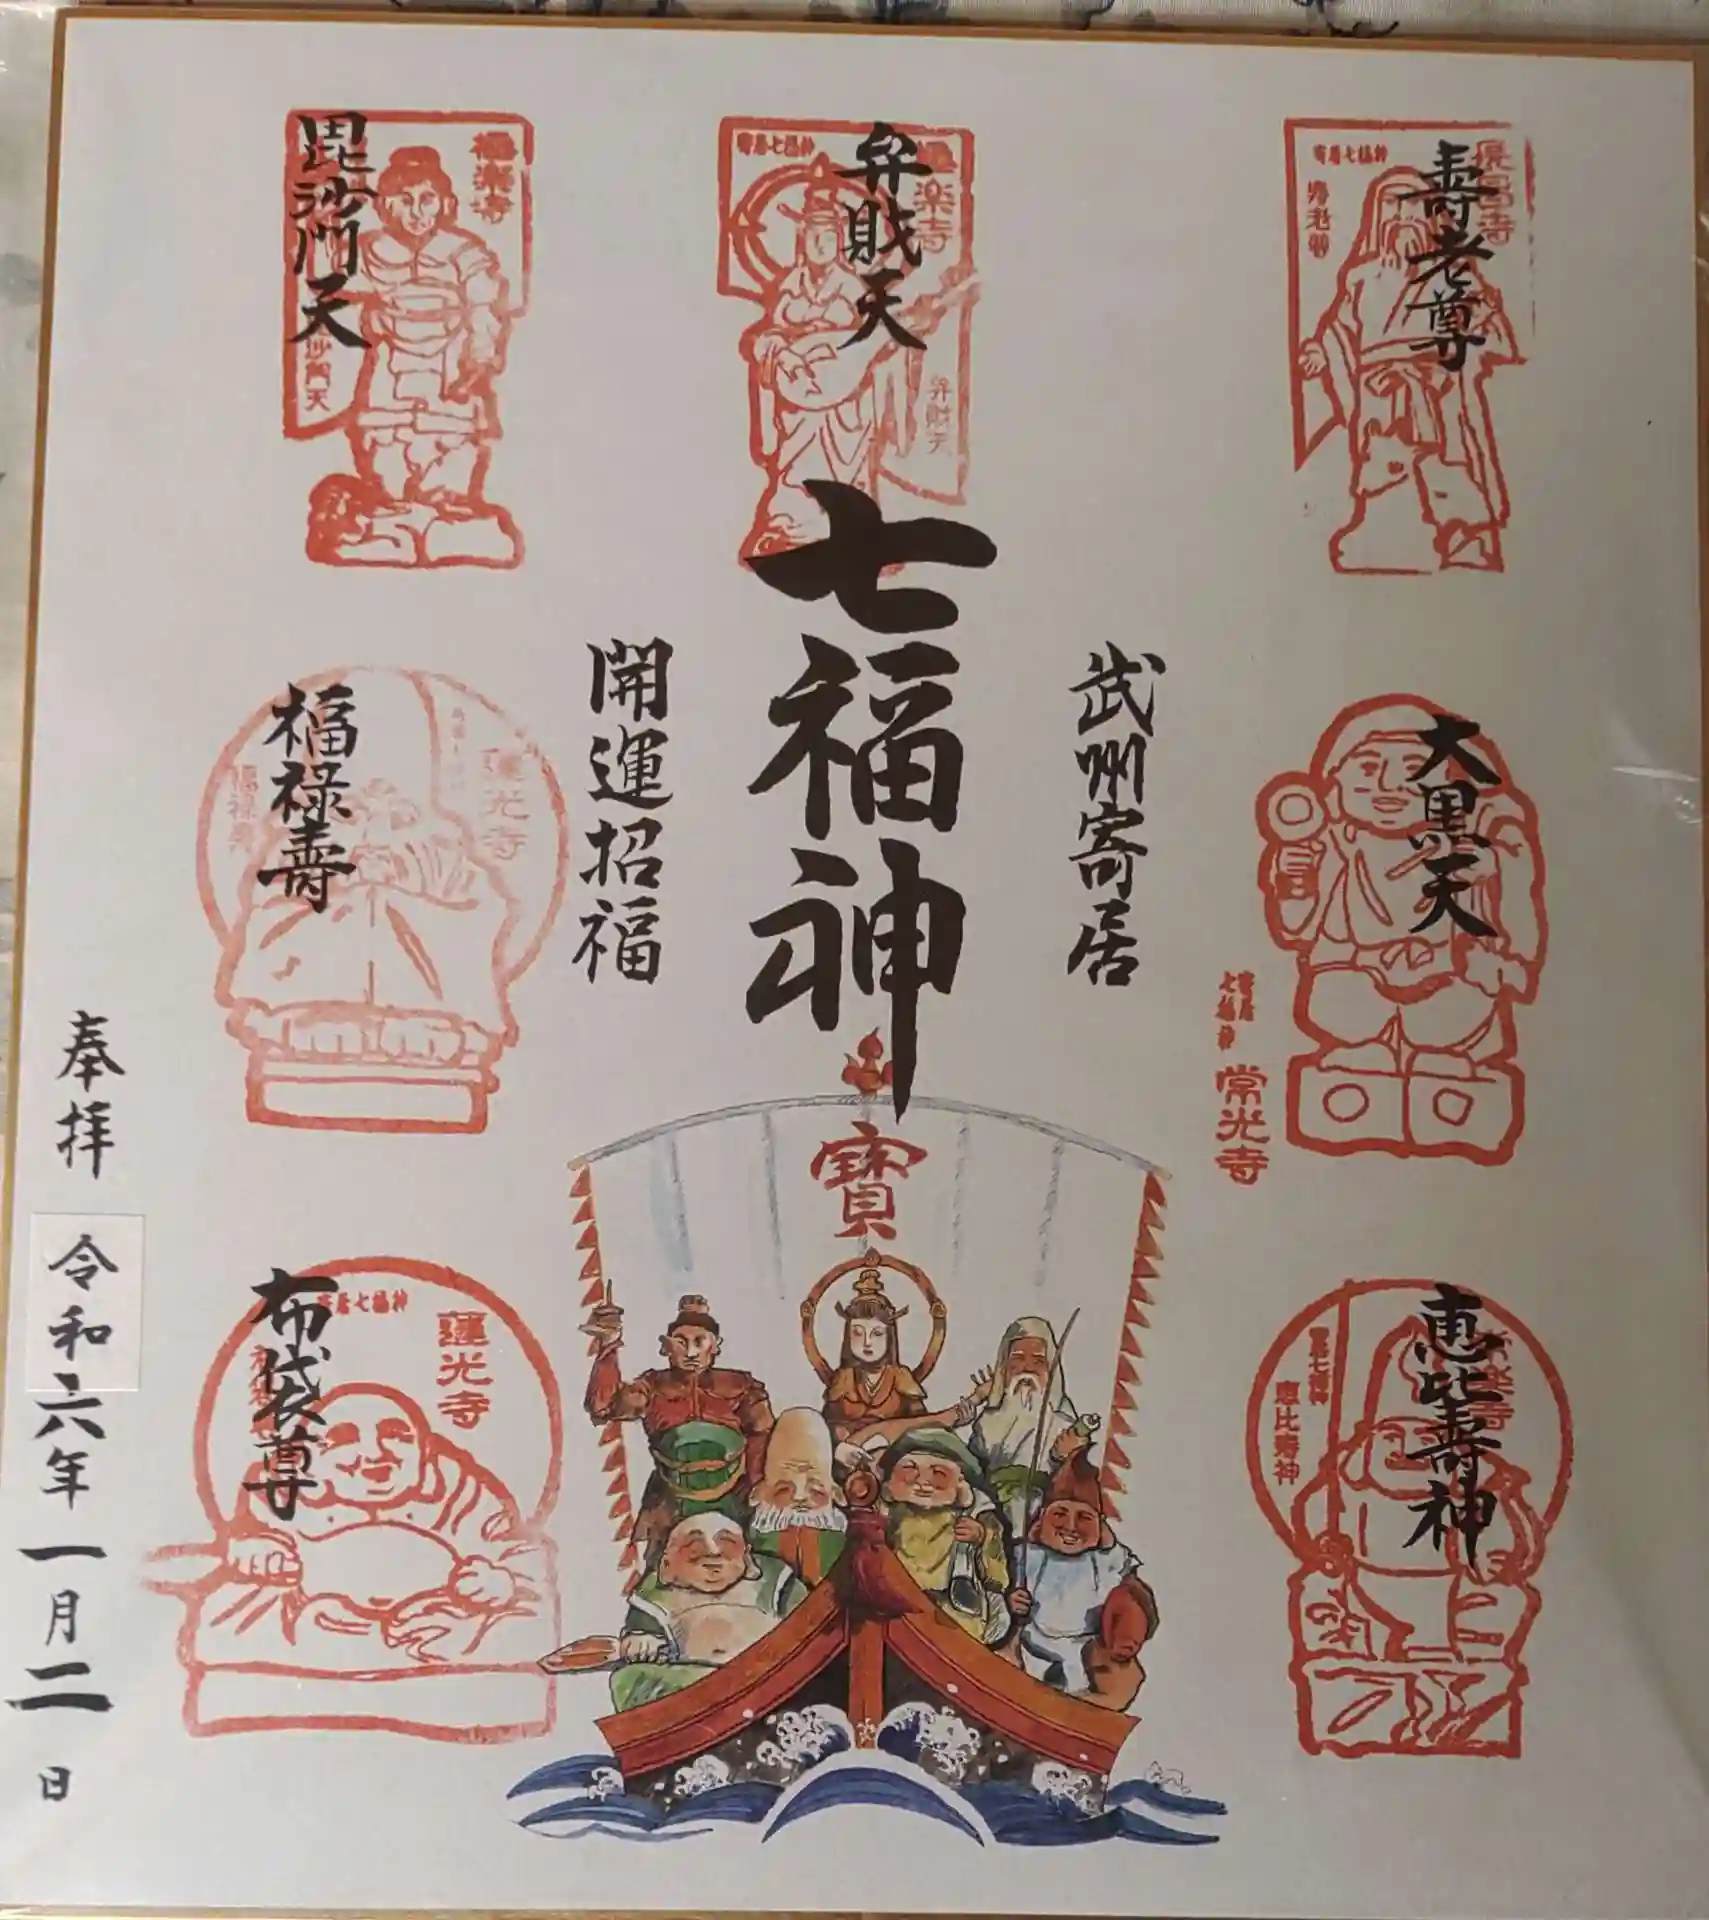 寿老尊
長昌寺
寄居七福神
寿老尊
大黒天
寄居
七福神
常光寺
恵比寿神
恵比寿神
武州寄居
弁財天
極楽寺
寄居七福神
弁財天
七福神
寳
開運招福
毘沙門天
極楽寺
沙門天
福禄寿
蓮光寺
福禄寿
布袋尊
寄居七福神
蓮光寺
奉拝
令和六年一月二日